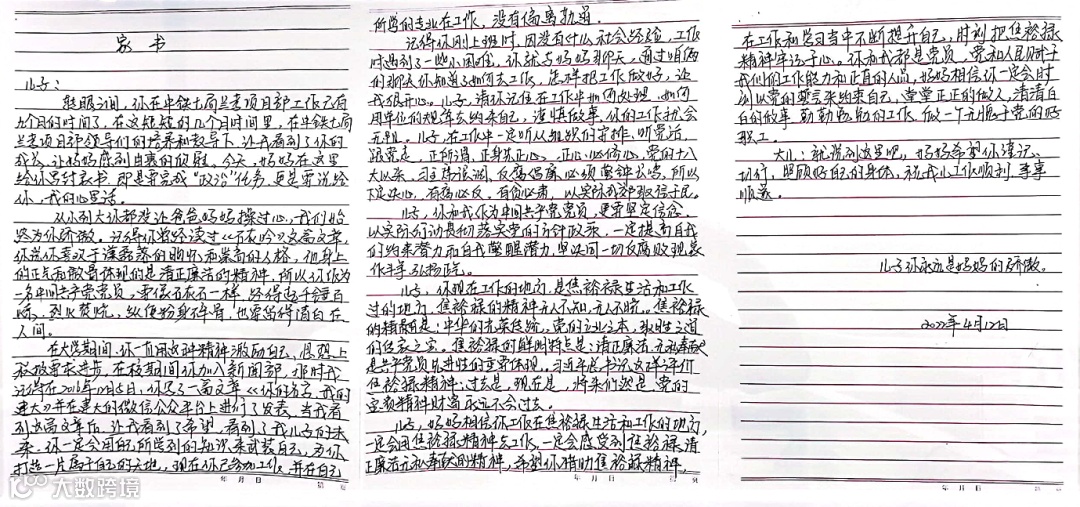 家 书
儿子:
眨眼之间,你在中铁七局兰考项目部工作已有
九个月的时间了,在这短短的几个月时间里,在中铁七局
兰考项目部领导们的培养和教导下,让我看到了你的
成长,让妈妈感到由衷的欣慰。今天,妈妈在这里
给你写封家书,即是要完成“政治”任务,更是要说给
你,我的心里话。
从小到大你都没让爸爸妈妈操过心,我们始
终为你骄傲。记得你曾经读过《石灰吟》这篇文章,
你说你喜欢于谦磊落的胸怀和崇高的人格,他身上
的正气和骨体现的是清正廉洁的精神,所以你作为
一名中国共产党党员,要像石灰石一样,经得起千锤百
炼,烈火焚烧,纵使粉身碎骨,也要留得清白在
人间。
在大学期间,你一直用这种精神激励自己,思想上
积极要求进步,在校期间你加入新闻部,那时我
记得在2016年04月5日,你写了一篇文章《你的名字,我的
建大》并在建大的微信公众平台上进行了发表,当我看
到这篇文章后,让我看到了希望,看到了我儿子的未
来,你一定会用自己所学到的知识来武装自己,为你
打造一片属于自己的天地,现在你已参加工作,并在自己
年 月 日 第 页
所学的专业在工作,没有偏离轨道。
记得你刚上班时,因没有什么社会经验,工作
时遇到了一些小困难,你就与妈妈聊天,通过咱俩
的聊天你知道了如何去工作,怎样把工作做好,让
我很开心。儿子,请你记住在工作中如何处理,如何
用单位的规章去约束自己,谨慎做事,你的工作就会
无阻。儿子,在工作中一定听从组织的安排,听党话,
跟党走,正所谓,正身先正心,正心必修心,党的十八
大以来,习主席强调,反腐倡廉必须警钟长鸣,所以
不定决心,有腐必反,有贪必肃,以实际成效取信于民。
儿子,你和我作为中国共产党党员,更要坚定信念,
以实际行动贯彻落实党的方针政策,一定提高自我
们约束潜力和自我警醒潜力,坚决同一切腐败现象
作斗争,弘扬正气。
儿子,你现在工作的地方,是焦裕禄生活和工作
过的地方,焦裕禄的精神无人不知,无人不晓。焦裕禄
的精神是:中华的光荣传统,党的立业之本,执政之道
的传家之宝。焦裕禄的鲜明特点是:清正廉洁、无私奉献
是共产党员先进性的重要体现。习近平总书记这样评价
焦裕禄精神:过去是,现在是,将来仍然是,党的
宝贵精神财富,永远不会过去。
儿子,妈妈相信你工作在焦裕禄生活和工作的地方,
一定会用焦裕禄精神去工作,一定会感受到焦裕禄,清
正廉洁无私奉献的精神,希望你借助焦裕禄精神,
年 月 日 第 页
在工作和学习当中不断提升自己,时刻把焦裕禄
精神牢记于心。你和我都是党员,党和人民赋予
我们的工作能力和正直的人品,妈妈相信你一定会时
刻以党的誓言来约束自己,堂堂正正的做人,清清白
白的做事,勤勤恳恳的工作,做一个无愧于党的好
职工。
大儿:就说到这里吧,妈妈希望你谨记、
切行,照顾好自己的身体,祝我儿工作顺利,事事
顺遂。
儿子你永远是妈妈的骄傲。
2022年4月12日
年 月 日 第 页
大数跨境